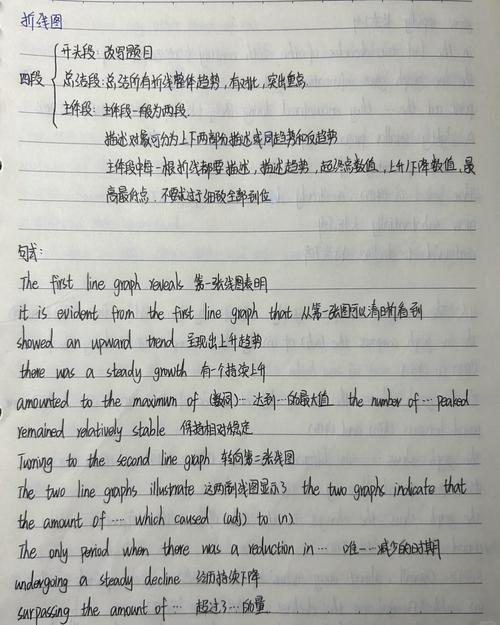 折线图
开头段：改写题目
四段 总括段：总括所有折线整体趋势，有对比，突出重点
主体段：主体段一般为两段.
描述对象可分为上下两部分描述或同趋势和反趋势
主体段中每一根折线都要描述，描述趋势，起终点数值，上升/下降数值，最
高最低点，不要求过于细致全部到位
句式：
The first line graph reveals 第一张线图表明
it is evident from the first line graph that 从第一张图可以清晰看到
showed an upward trend 呈现出上升趋势
there was a steady growth 有一个持续上升
amounted to the maximum of (数词)… 达到…的最大值 the number of … peaked
remained relatively stable 保持相对稳定
Turning to the second line graph 转向第二张线图
The two line graphs illustrate 这两副线图显示了 the two graphs indicate that
the amount of … which caused (adj) to (n)
The only period when there was a reduction in … 唯一…减少的时期
undergoing a steady decline 经历持续下降
surpassing the amount of … 超过了…的量